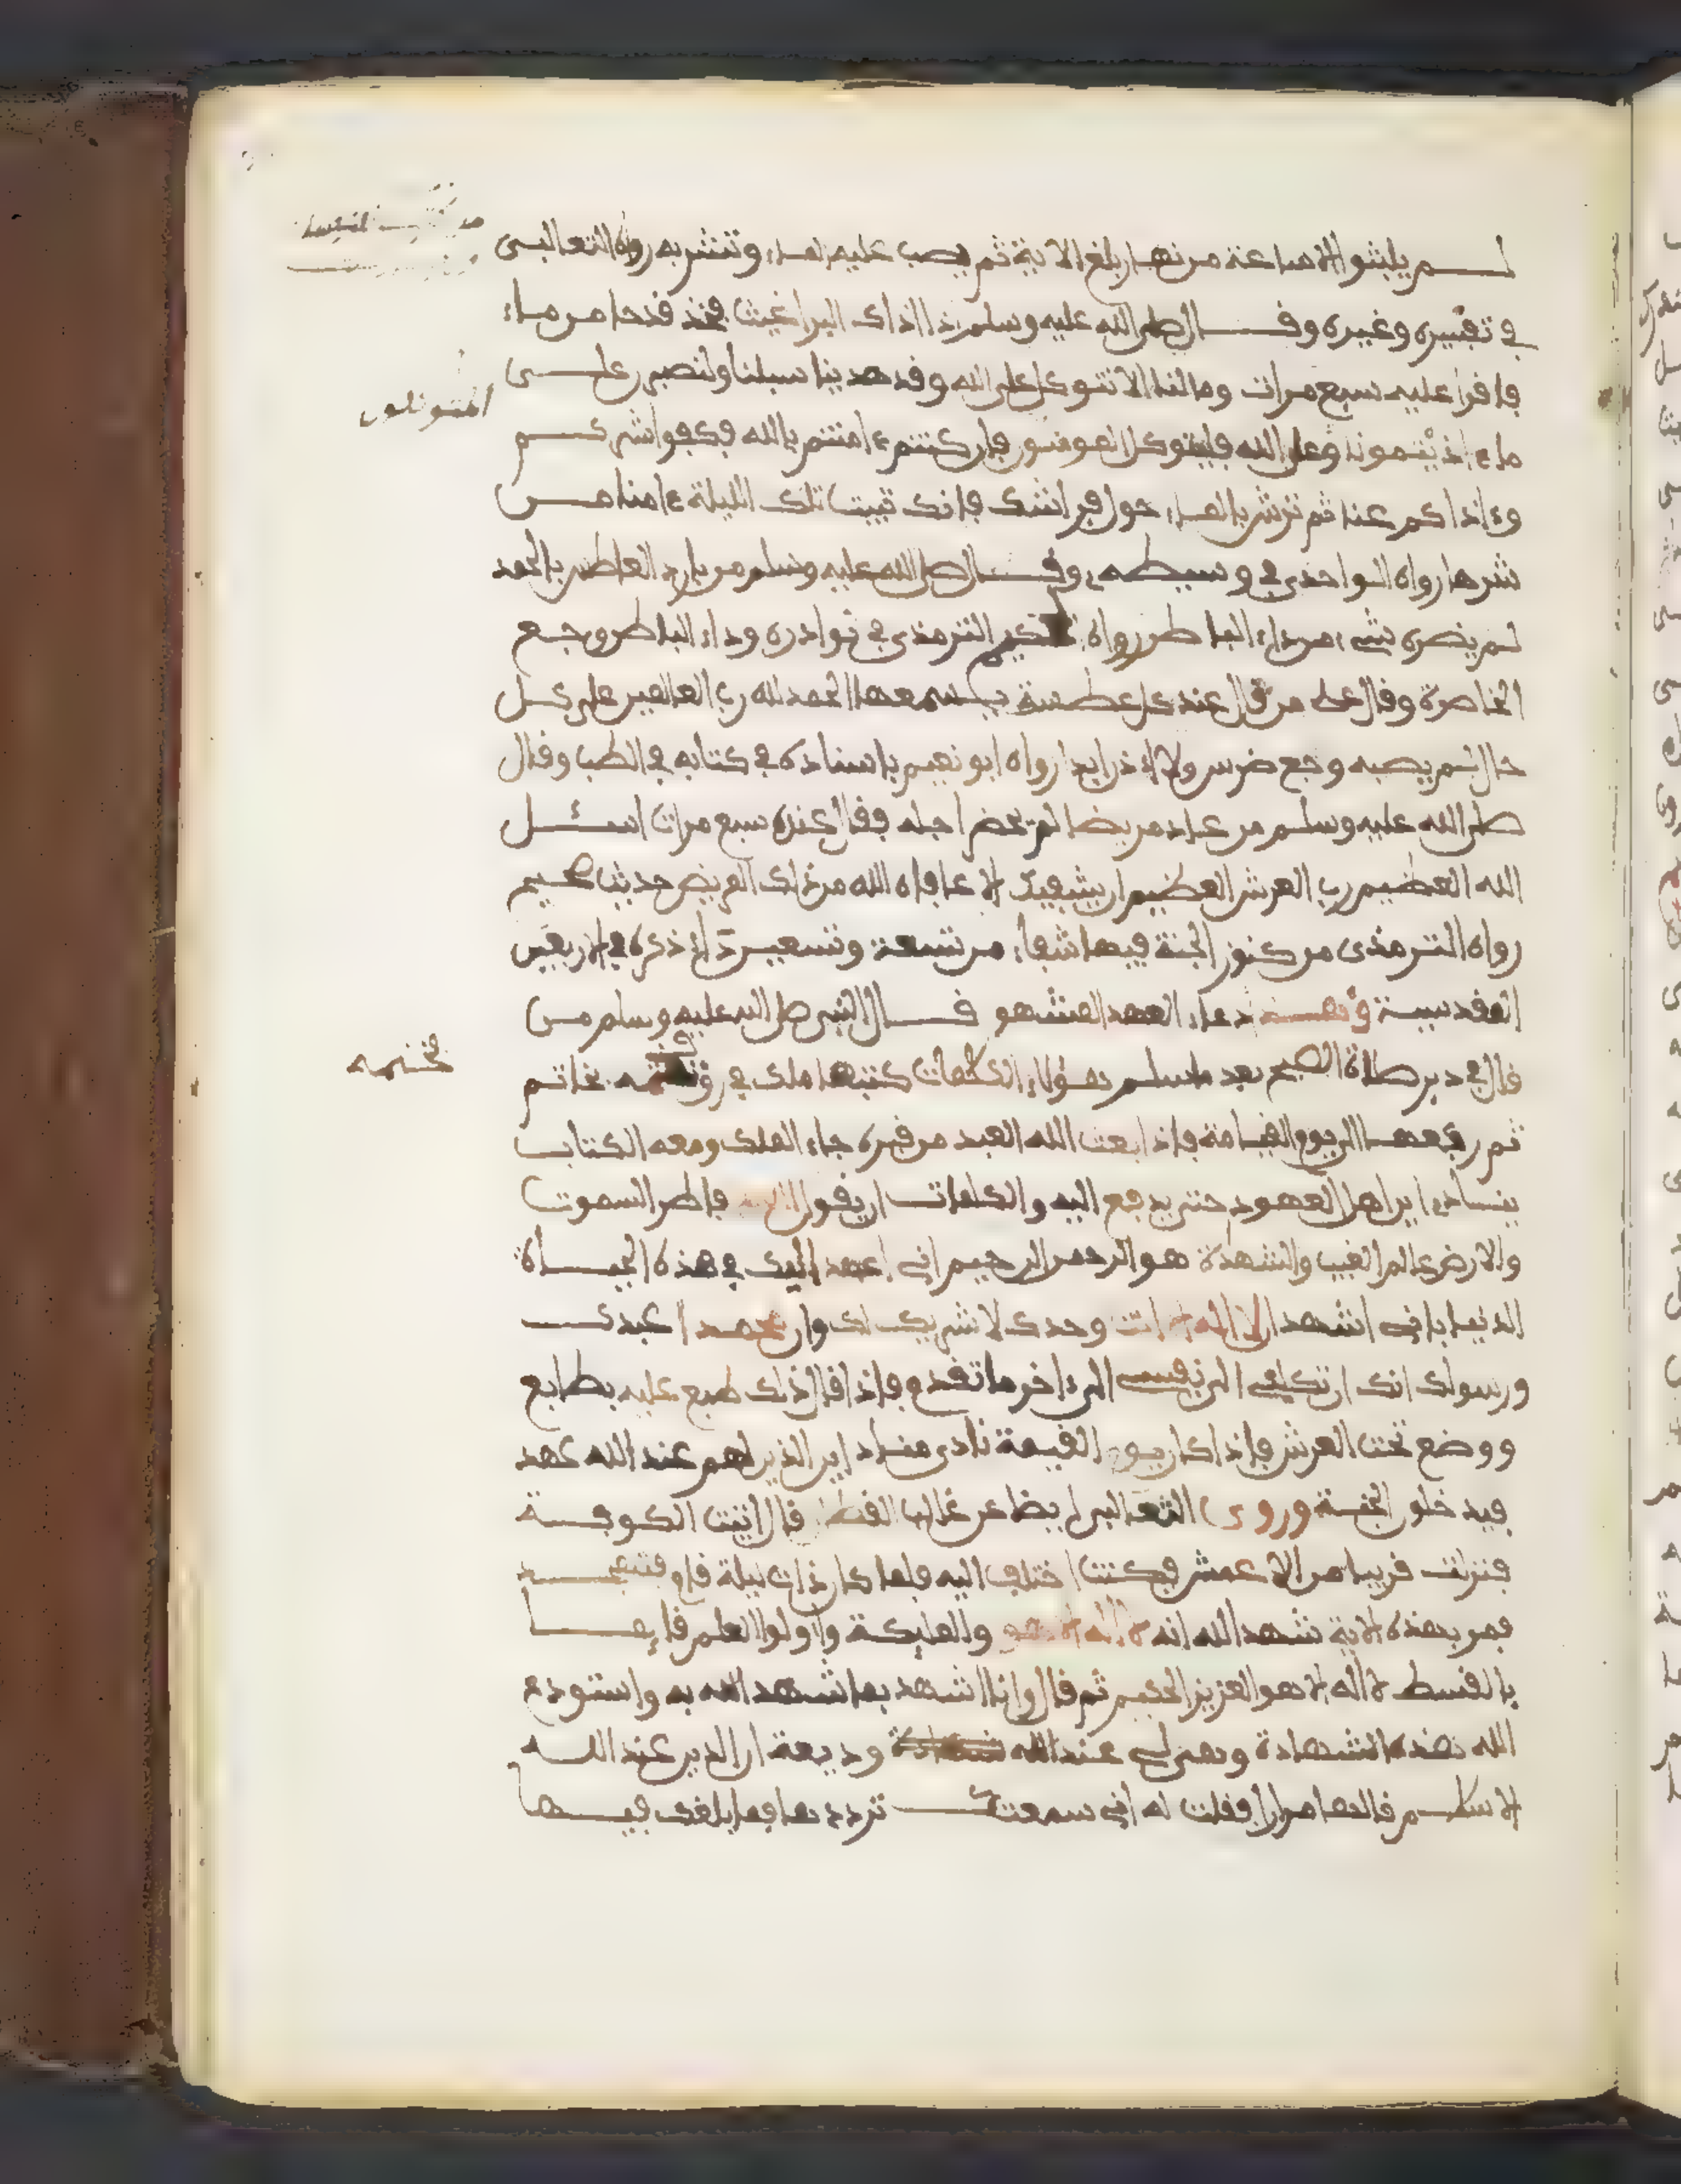 لم يلبثوا الا ساعة من نهار بلغ الاية ثم يصب عليه الماء وتنشر به رواه الثعالبى
في تفسيره وغيره وقال صلى الله عليه وسلم اذا اذاك البراغيث فخذ قدحا من ماء
فاقرا عليه سبع مرات وما لنا الا نتوكل على الله وقد هدينا سبلنا ولنصبرن على
ما ءاذيتمونا وعلى الله فليتوكل المومنون فان كنتم ءامنتم بالله فكفوا شركم
المتوكلون
وءاذاكم عنا ثم ترش بالماء حول فراشك فانك تبيت تلك الليلة ءامنا من
شرها رواه الواحدى في وسيطه وقال صلى الله عليه وسلم من بادر العاطس بالحمد
لم يضره شىء من داء الباطن رواه الحكيم الترمذى في نوادره وداء الباطن وجع
الخاصرة وقال على من قال عند كل عطسة يسمعها الحمد لله رب العالمين على كل
حال لم يصبه وجع ضرس ولا اذن ابدا رواه ابو نعيم باسناده في كتابه في الطب وقال
صلى الله عليه وسلم من عاد مريضا لم يحضر اجله فقال عنده سبع مرات اسئل
الله العظيم رب العرش العظيم ان يشفيك الا عافاه الله من ذلك المريض حديث صحيح
رواه الترمذى من كنوز الجنة فيها شفاء من تسعة وتسعين داء ذكره في الاربعين
القدسية دعاء العهد المشهو قال النبى صلى الله عليه وسلم من
قال في دبر صلاة الصبح بعد ما سلم هؤلاء الكلمات كتبها ملك في رق بخاتم
فختمه
ثم رفعها الى يوم القيامة فاذا بعث الله العبد من قبره جاء الملك ومعه الكتاب
ينادى اين اهل العهود حتى يدفع اليه والكلمات ان يقول اللهم فاطر السموت
والارض عالم الغيب والشهدة هو الرحمن الرحيم انى اعهد اليك في هذه الحياة
الدنيا بانى اشهد ان لا اله الا انت وحدك لا شريك لك وان محمدا عبدك
ورسولك انك ان تكلنى الى نفسى الى ءاخر ما تقدم فاذا قال ذلك طبع عليه بطابع
ووضع تحت العرش فاذا كان يوم القيمة نادى مناد اين الذين لهم عند الله عهد
فيدخلون الجنة وروى الثعالبى ايضا عن غالب القطان قال اتيت الكوفة
فنزلت قريبا من الاعمش فكنت اختلف اليه فلما كان ذات ليلة قام فتهجد
فمر بهذه الاية شهد الله انه لا اله الا هو والمليكة واولوا العلم قايما
بالقسط لا اله الا هو العزيز الحكيم ثم قال وانا اشهد بما شهد الله به واستودع
الله هذه الشهادة وهى لى عند الله وديعة ان الدين عند الله
الاسلام قالها مرارا فقلت له انى سمعتك تردد ها فما بلغك فيها